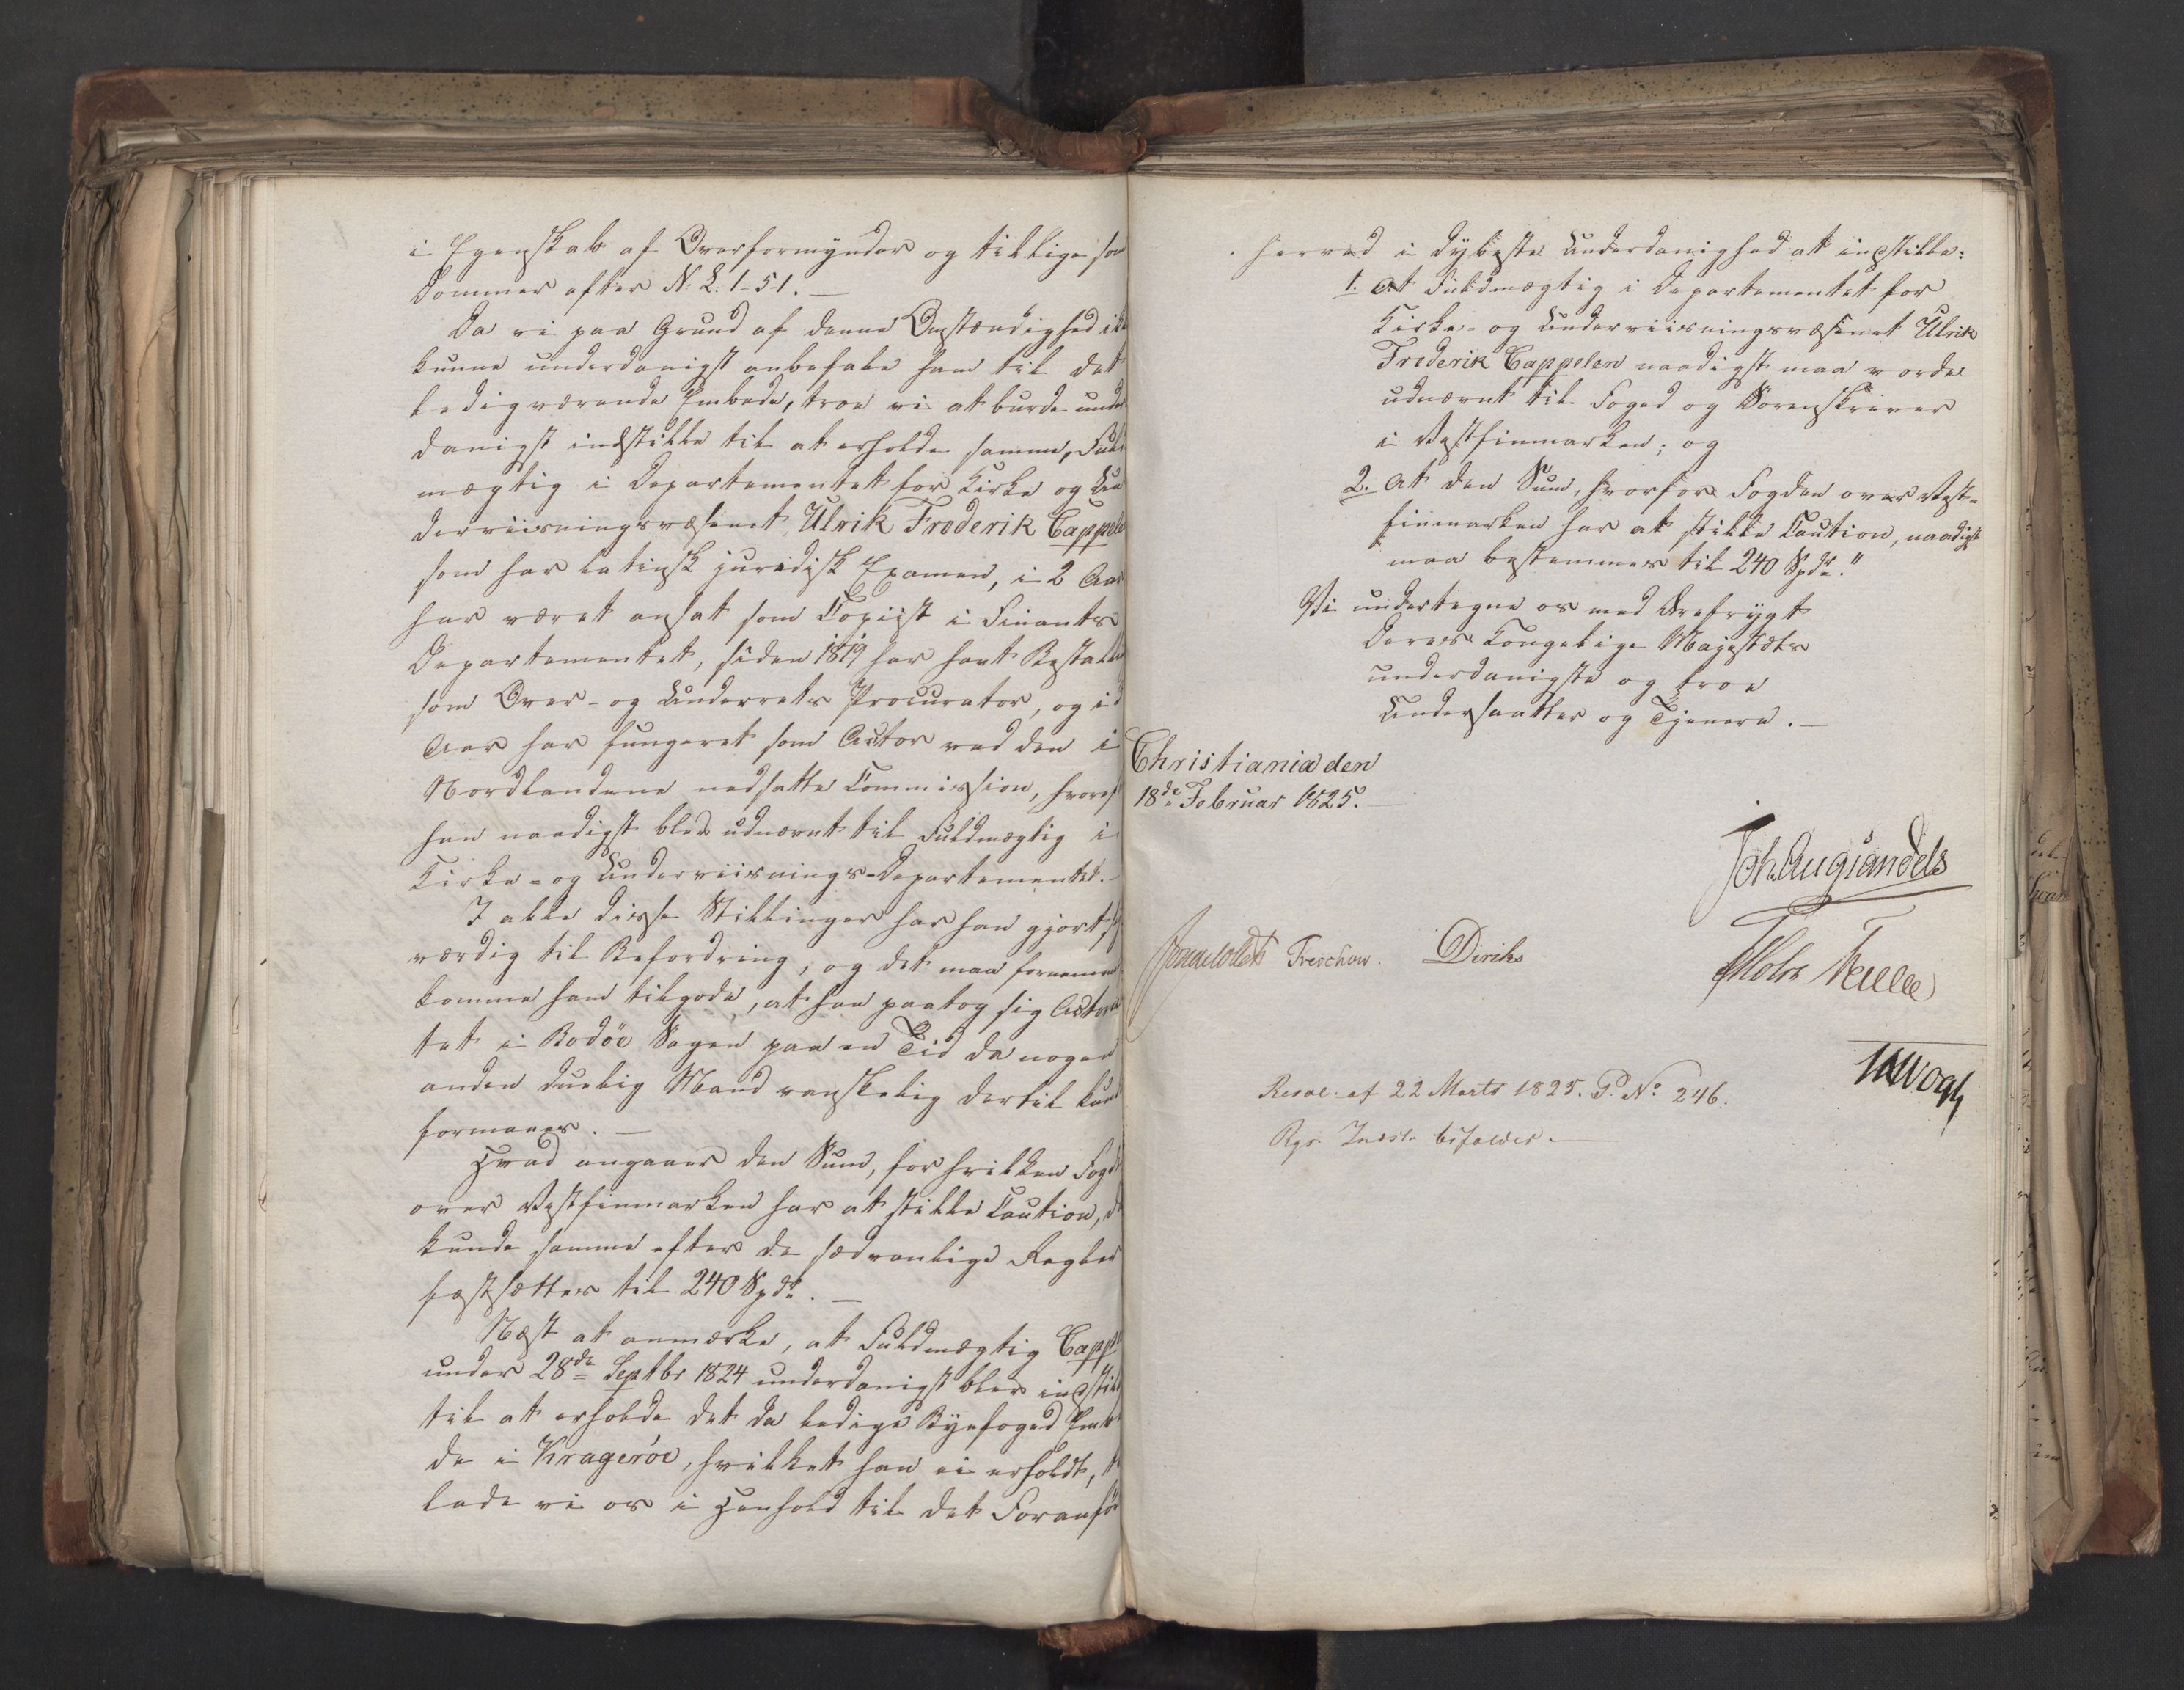 i Egenskab af Overformynder og tillige som
Dommer efter N: L: 1-5-1. —
Da vi paa Grund af denne Omstændighed ik
kunne underdanigst anbefale ham til det
ledigværende Embede, troe vi at burde under
danigst indstille til at erholde samme, Fuld
mægtig i Departementet for Kirke og Un
derviisningsvæsenet Ulrik Frederik Cappele
som har latinsk juridisk Examen, i 2 Aar
har været ansat som Copiist i Finants
Departementet, siden 1819 har havt Bestalli
som Over- og Underrets Procurator, og i
Aar har fungeret som Actor ved den i
Nordlandene nedsatte Commission, hvoref
han naadigst blev udnævnt til Fuldmægtig i
Kirke- og Underviisnings-Departementet. —
I alle disse Stillinger har han gjort sig
værdig til Befordring, og det maa fornemme
komme ham tilgode, at han paatog sig Actora
tet i Bodøe Sagen paa en Tid da nogen
anden duelig Mand vanskelig dertil kund
formaaes. —
Hvad angaaer den Sum, for hvilken Fogd
over Vestfinmarken har at stille Caution, d
kunde samme efter de sædvanlige Regler
fastsættes til 240 Spd. —
Næst at anmærke, at Fuldmægtig Cappe
under 28de Septbr 1824 underdanigst blev indstill
til at erholde det da ledige Byefoged Emb
de i Kragerøe, hvilket han ei erholdt,
lade vi os i Henhold til det Foranfør
herved i dybeste Underdanighed at indstille:
1. At Fuldmægtig i Departementet for
Kirke- og Underviisningsvæsenet Ulrik
Frederik Cappelen naadigst maa vorde
udnævnt til Foged og Sorenskriver
i Vestfinmarken; og
2. At den Sum, hvorfor Fogden over Vest-
finmarken har at stille Caution, naadigst
maa bestemmes til 240 Spd."
Vi undertegne os med Ærefrygt
Deres Kongelige Majestæts
underdanigste og troe
Undersaatter og Tjenere. —
Christiania den
18de Februar 1825.
Joh. Aug Sandels
Sommerfeldt Treschow. Diriks
Motzfeldt
Vogt
Resol. af 22 Marts 1825. P. No. 246.
Rgs. Indst. bifaldes. —